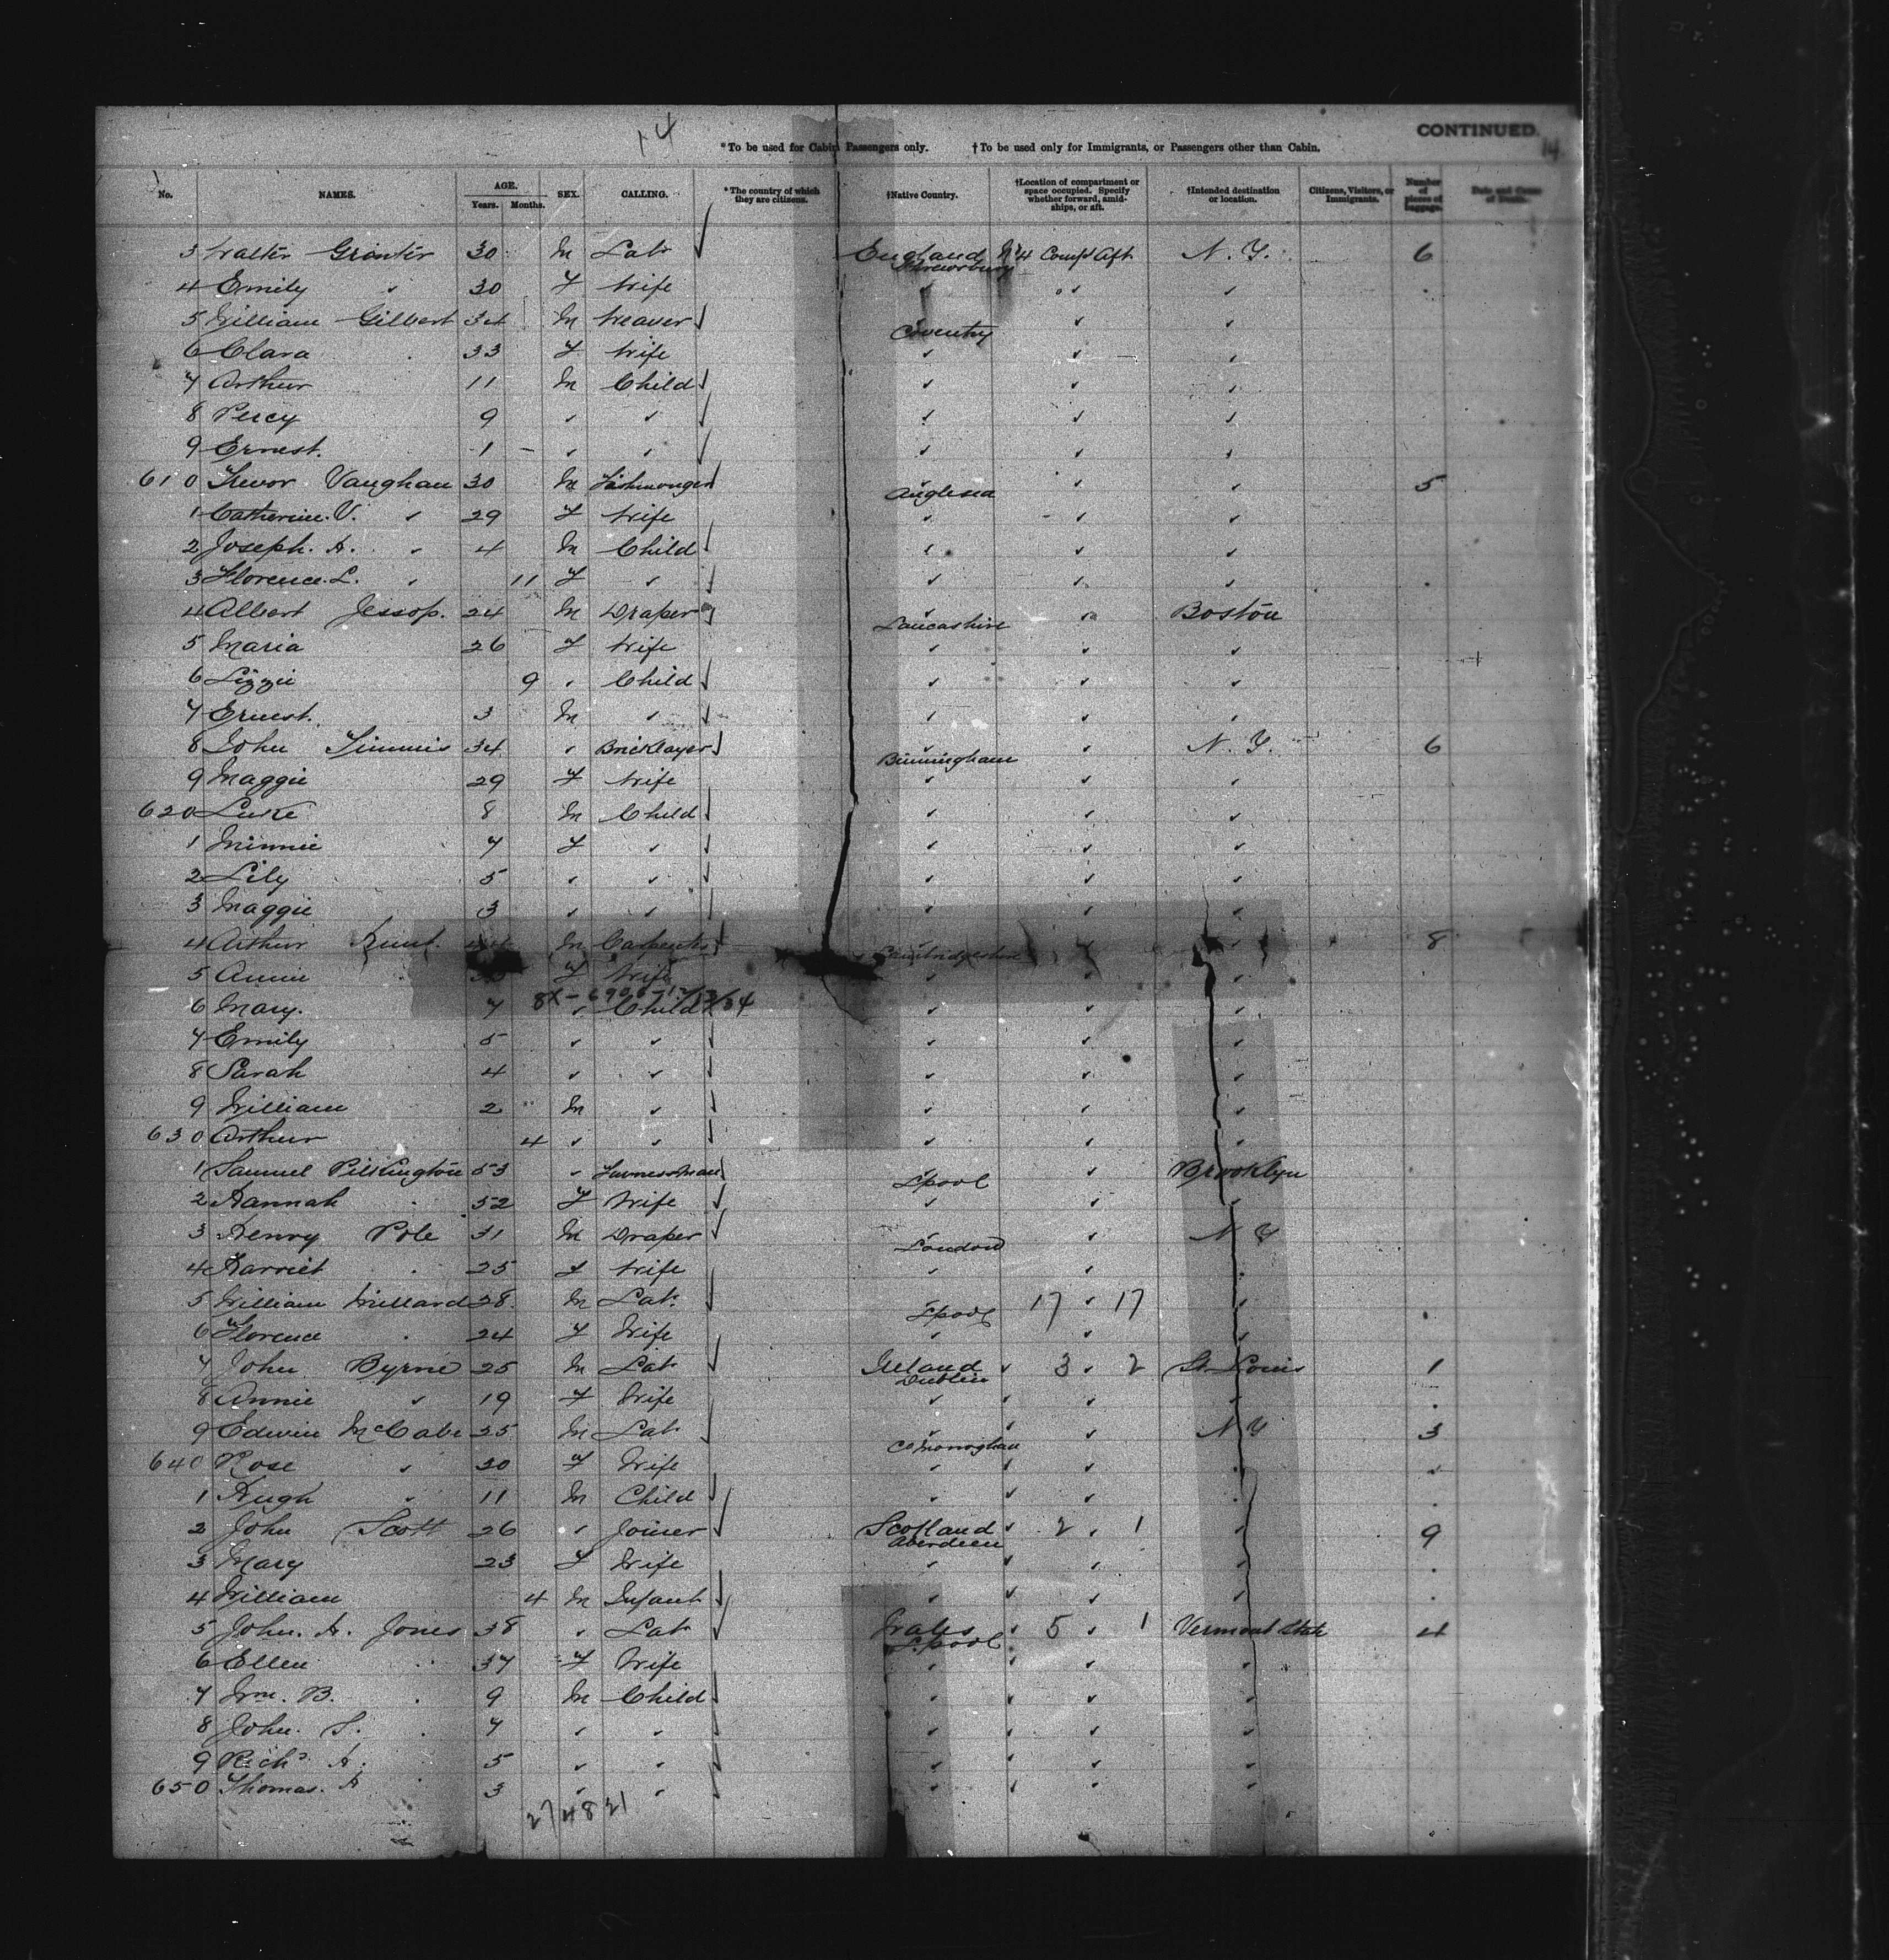 14
CONTINUED.
*To be used for Cabin Passengers only. †To be used only for Immigrants, or Passengers other than Cabin. 14
No. NAMES. AGE. Years. Months. SEX. CALLING. *The country of which they are citizens. †Native Country. †Location of compartment or space occupied. Specify whether forward, amidships, or aft. †Intended destination or location. Citizens, Visitors, or Immigrants. Number of pieces of luggage. Date and Cause of Death.
3 Walter Grinter 30 M Labr ✓ England Shrewsbury No 4 Comp't Aft N. Y. 6
4 Emily " 30 F Wife " " "
5 William Gilbert 34 M Weaver ✓ " Coventry " "
6 Clara " 33 F Wife " " "
7 Arthur 11 M Child ✓ " " "
8 Percy 9 " " ✓ " " "
9 Ernest. 1 - " " ✓ " " "
610 Trevor Vaughan 30 M Fishmonger ✓ " Anglesea " " 5
1 Catherine. V. " 29 F Wife " " "
2 Joseph. H. " 4 M Child ✓ " " "
3 Florence. L. " 11 F " ✓ " " "
4 Albert Jessop. 24 M Draper ✓ " Lancashire " Boston
5 Maria 26 F Wife " " "
6 Lizzie 9 " Child ✓ " " "
7 Ernest. 3 M " ✓ " " "
8 John Timmis 34 " Bricklayer ✓ " Birmingham " N. Y. 6
9 Maggie 29 F Wife " " "
620 Luke 8 M Child ✓ " " "
1 Minnie 7 F " ✓ " " "
2 Lily 5 " " ✓ " " "
3 Maggie 3 " " ✓ " " "
4 Arthur M Carpenter ✓ " Cambridgeshire " " 8
5 Annie " F Wife " " "
8X-6906-12/13/34
6 Mary. 7 " Child ✓ " " "
7 Emily 5 " " ✓ " " "
8 Sarah 4 " " ✓ " " "
9 William 2 M " ✓ " " "
630 Arthur 4 " " ✓ " " "
1 Samuel Pilkington 53 " Furnessman ✓ " Lpool " Brooklyn
2 Hannah " 52 F Wife ✓ " " "
3 Henry Pole 31 M Draper ✓ " London " N Y
4 Harriet " 25 F Wife " " "
5 William Willard 28. M Labr ✓ " Lpool 17 " 17 "
6 Florence " 24 F Wife " " "
7 John Byrne 25 M Labr ✓ Ireland Dublin " 3 " 2 St. Louis 1
8 Annie " 19 F Wife " " " "
9 Edwin McCabe 25 M Labr ✓ " Co Monoghan " " N Y 3
640 Rose " 20 F Wife " " " "
1 Hugh " 11 M Child ✓ " " " "
2 John Scott 26 " Joiner ✓ Scotland Aberdeen " 2 " 1 " 9
3 Mary 23 F Wife " " " "
4 William 4 M Infant ✓ " " " "
5 John. H. Jones 38 " Labr ✓ Wales Lpool " 5 " 1 Vermont State 4
6 Ellen " 37 F Wife " " " "
7 Wm. B. " 9 M Child ✓ " " " "
8 John. S. " 7 " " ✓ " " " "
9 Richd H. 5 " " ✓ " " " "
650 Thomas. H " 3 " " ✓ " " " "
27 48 21